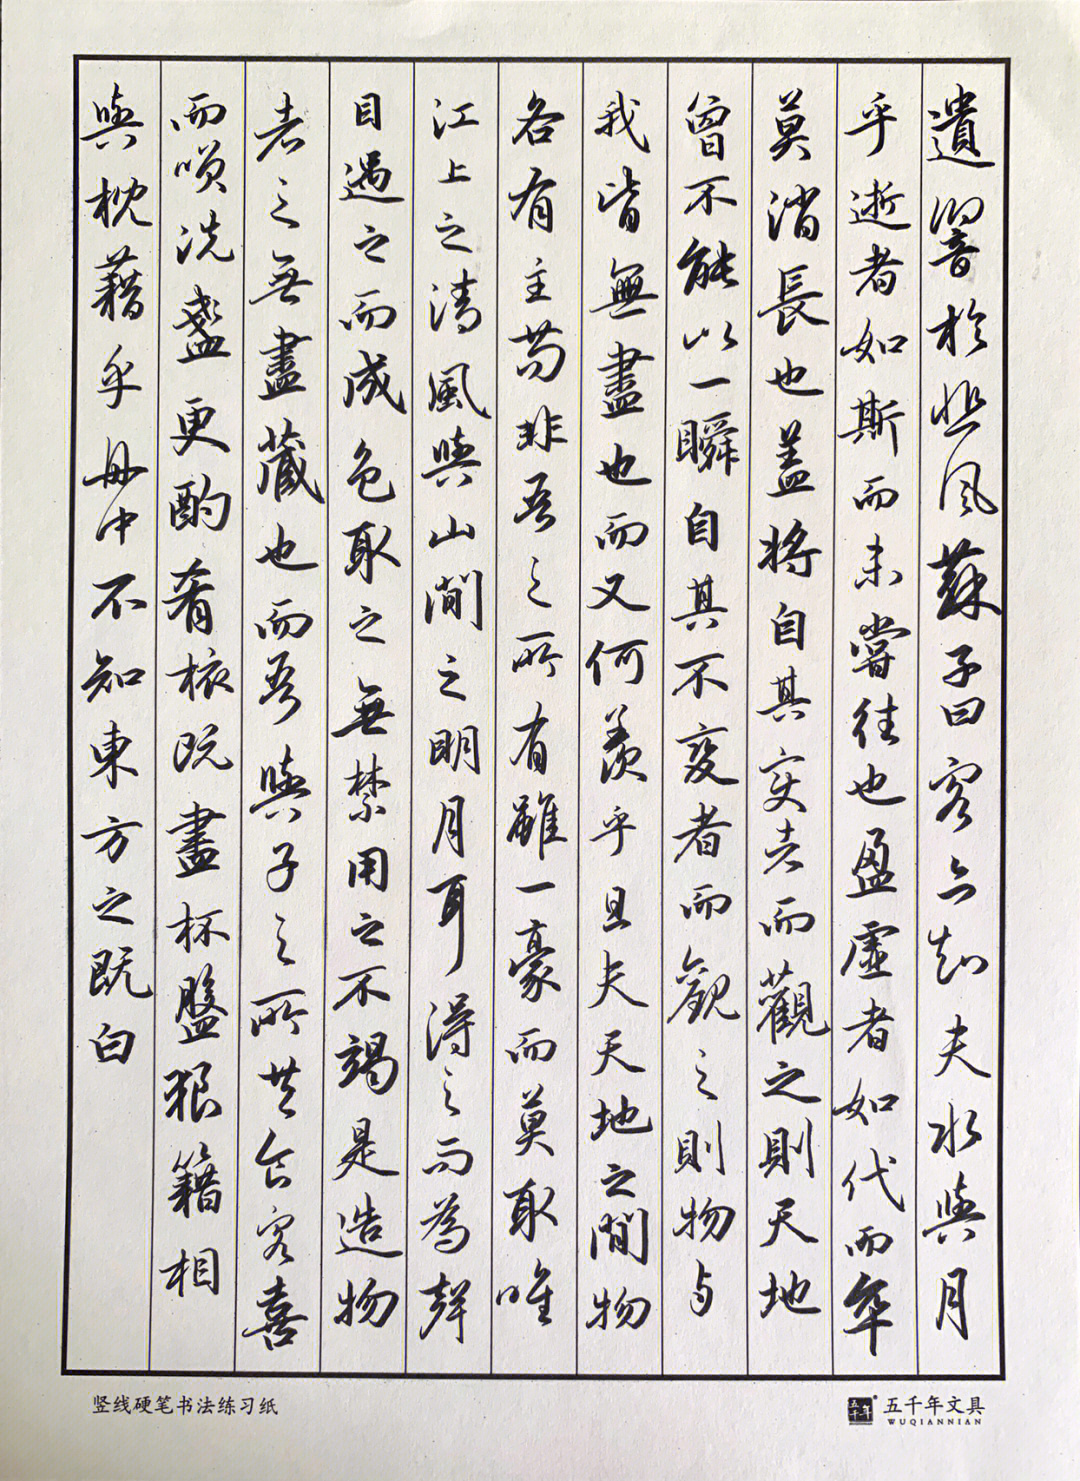 遺響於悲風蘇子曰客亦知夫水與月
乎逝者如斯而未嘗往也盈虛者如代而卒
莫消長也盖將自其变者而觀之則天地
曾不能以一瞬自其不变者而觀之則物与
我皆無盡也而又何羨乎且夫天地之間物
各有主苟非吾之所有雖一豪而莫取唯
江上之清風與山間之明月耳得之而為聲
目遇之而成色取之無禁用之不竭是造物
者之無盡藏也而吾與子之所共食客喜
而咲洗盞更酌肴核既盡杯盤狼籍相
與枕藉乎舟中不知東方之既白
竖线硬笔书法练习纸
五千年文具
WUQIANNIAN